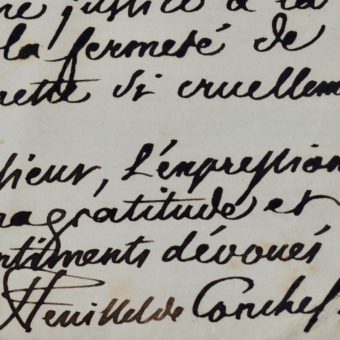 ne justice à la
la fermeté de
nette si cruellem
sieur, L'expression
ma gratitude et
ntiments dévoués
Feuillet de Conches